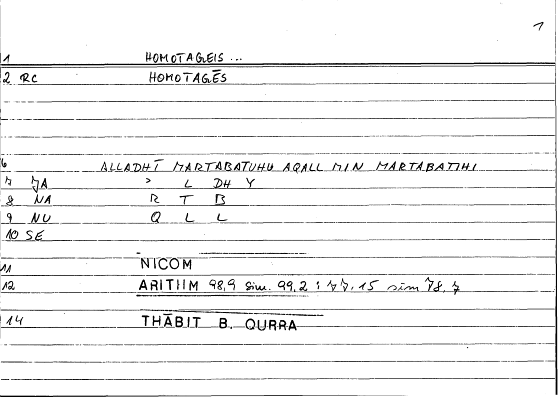 1
1 HOMOTAGEIS ...
2 RC HOMOTAGĒS
6 ALLADHĪ MARTABATUHU AQALL MIN MARTABATIHI
7 JA ' L DH Y
8 NA R T B
9 NU Q L L
10 SE
11 NICOM
12 ARITHM 98,9 sim. 99,2 : 77,15 sim 78,7
14 THĀBIT B. QURRA